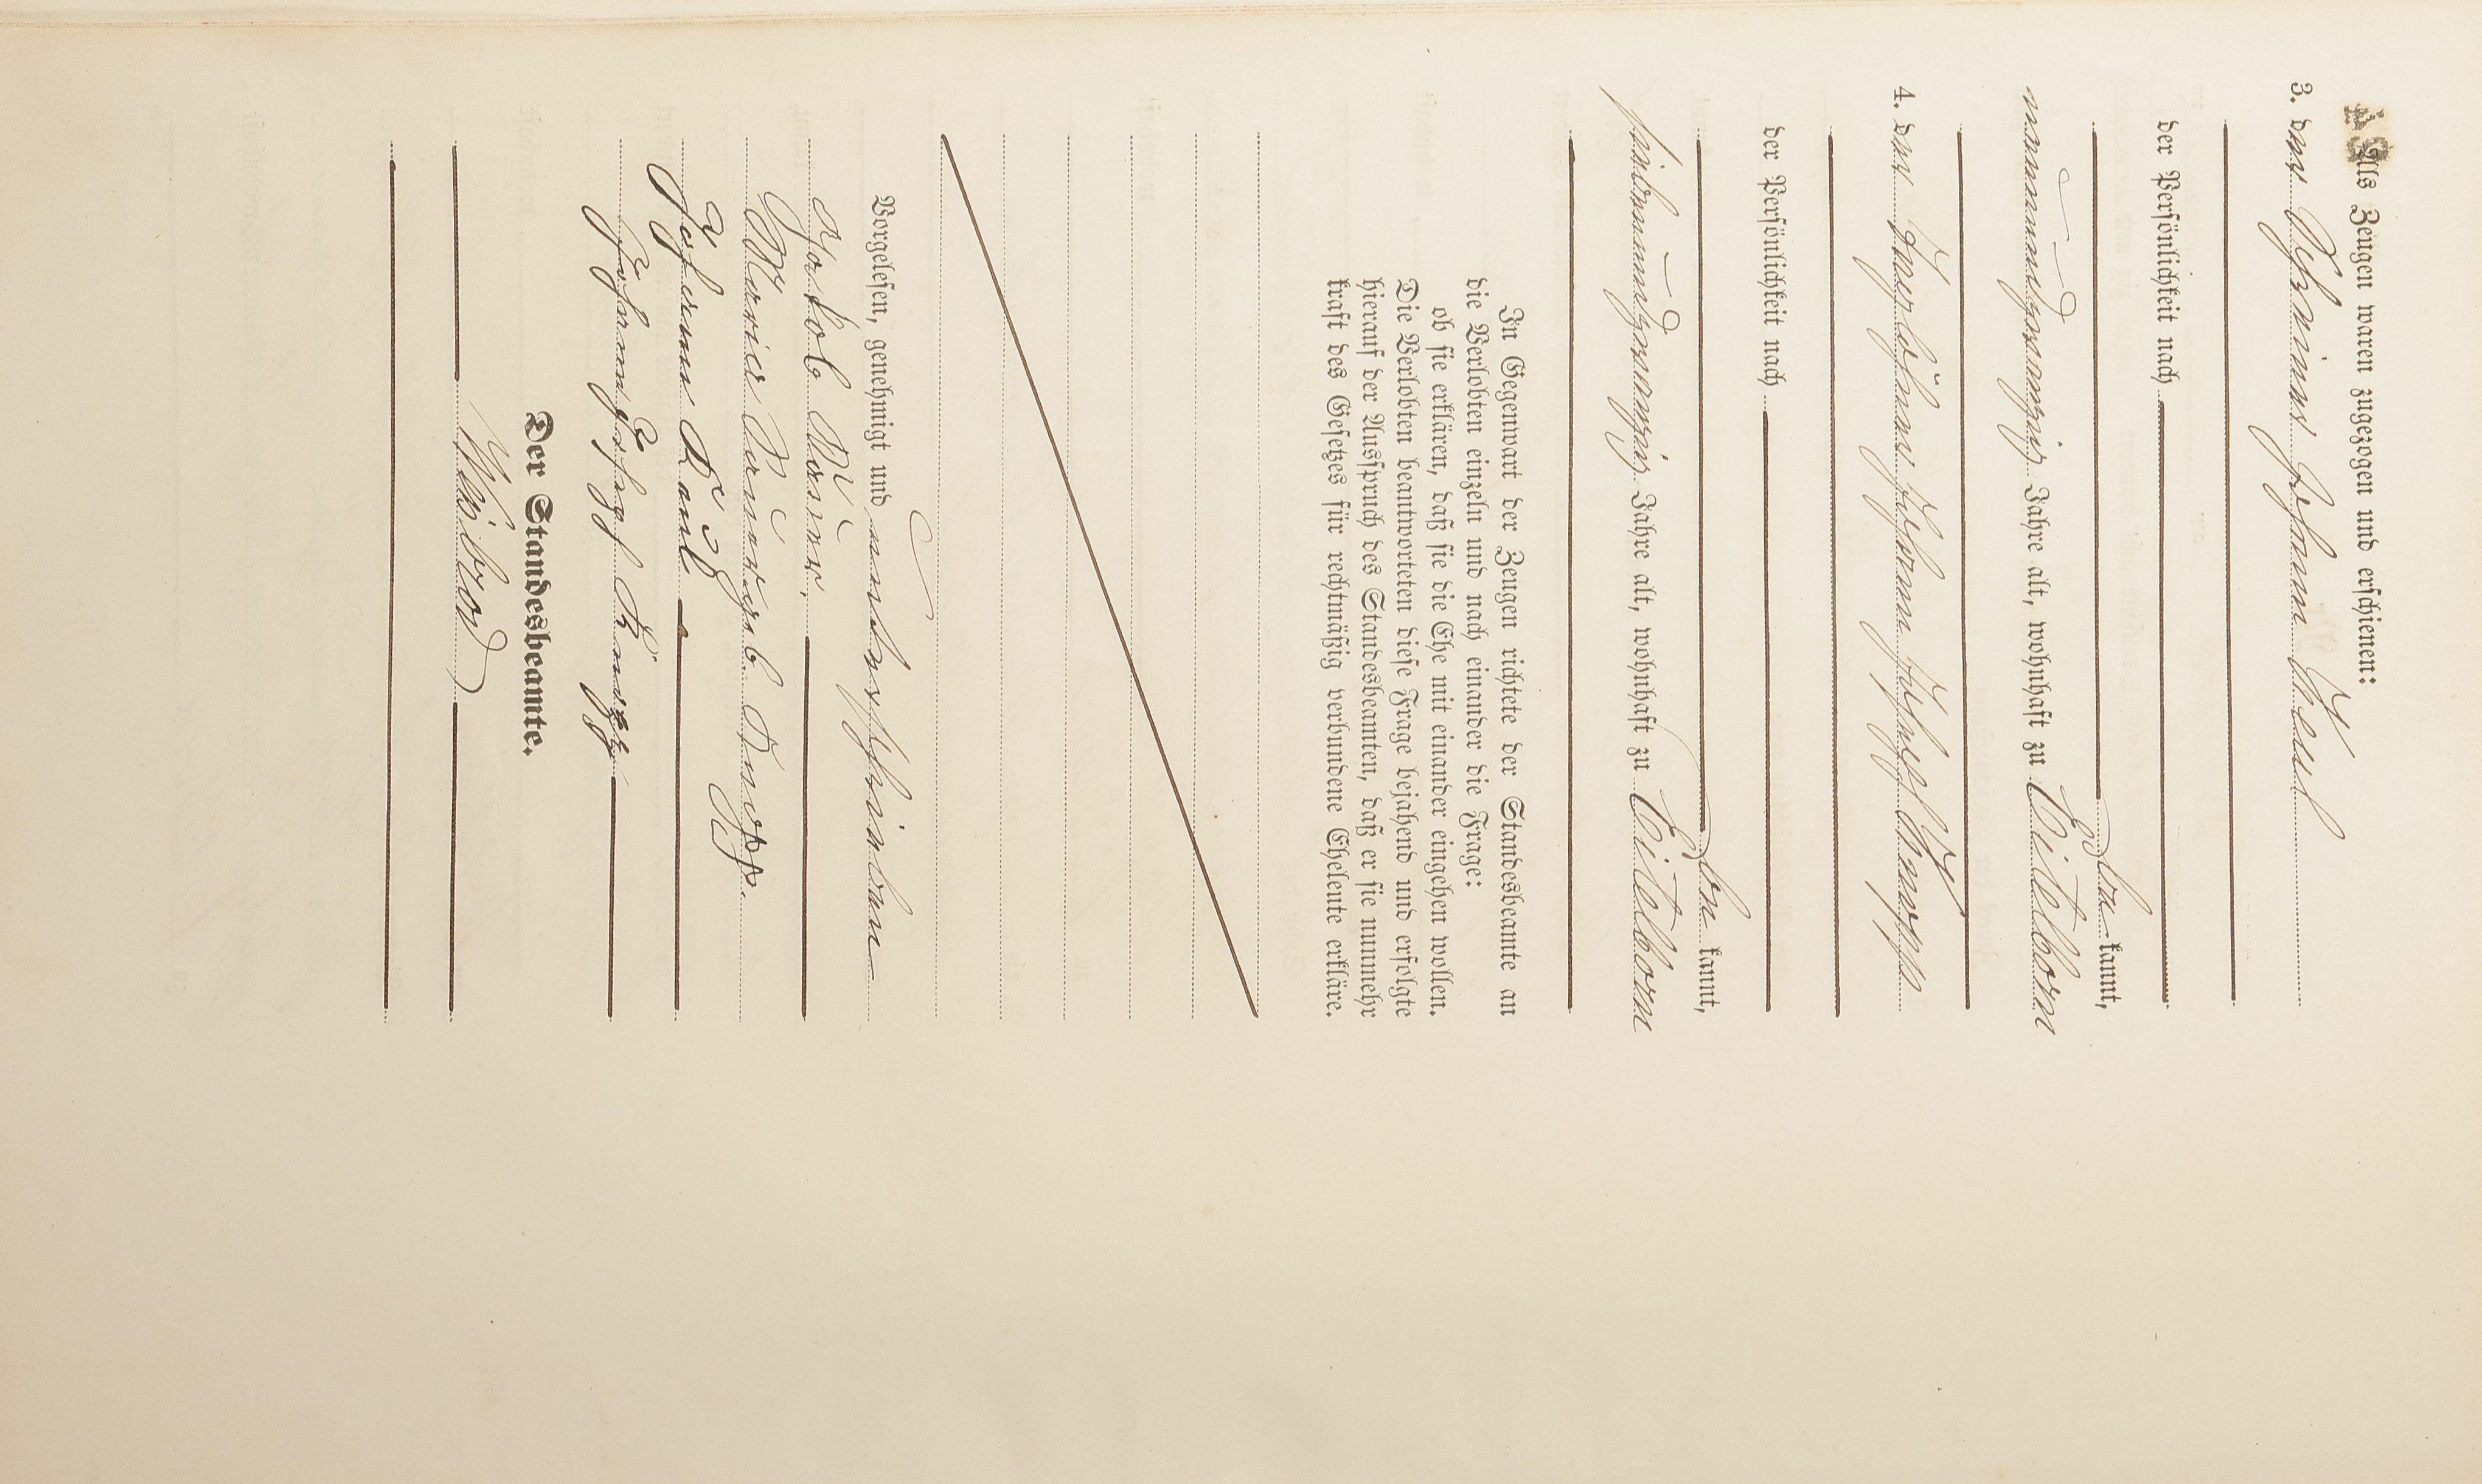 Als Zeugen waren zugezogen und erschienen:
3. der Schreiner Johann Keul
der Persönlichkeit nach
be kannt,
neunundzwanzig Jahre alt, wohnhaft zu Eitelborn
4. der Tagelöhner Johann Joseph Knopp
der Persönlichkeit nach
be kannt,
siebenundzwanzig Jahre alt, wohnhaft zu Eitelborn
In Gegenwart der Zeugen richtete der Standesbeamte an
die Verlobten einzeln und nach einander die Frage:
ob sie erklären, daß sie die Ehe mit einander eingehen wollen.
Die Verlobten beantworteten diese Frage bejahend und erfolgte
hierauf der Ausspruch des Standesbeamten, daß er sie nunmehr
kraft des Gesetzes für rechtmäßig verbundene Eheleute erkläre.
Vorgelesen, genehmigt und unterschrieben
Jakob
Maria geb. Knopp.
Johann Keul
Johann Josef Knopp
Der Standesbeamte.